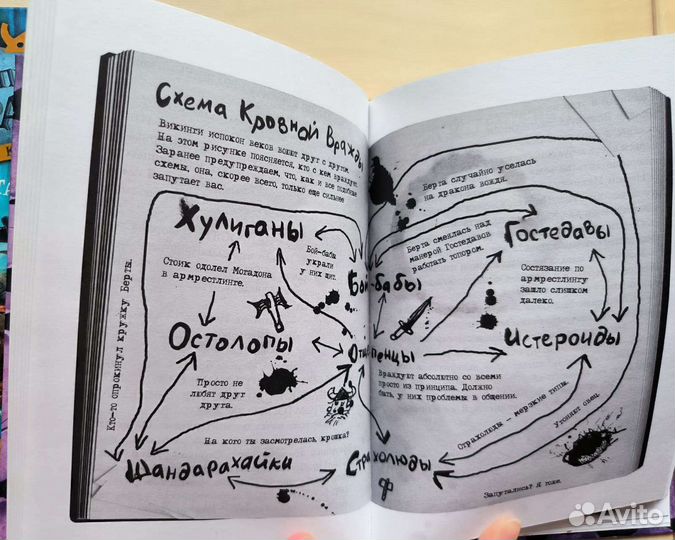 Схема Кровной Вражды
Викинги испокон веков воюют друг с другом.
На этом рисунке поясняется, кто с кем враждует.
Заранее предупреждаем, что, как и все подобные
схемы, она, скорее всего, только еще сильнее
запутает вас.
Берта случайно уселась
на дракона вождя.
Хулиганы
Бой-бабы
украли
у них щит.
Берта смеялась над
манерой Гостедавов
работать топором.
Гостедавы
Стоик одолел Могадона
в армрестлинге.
Бой-бабы
Состязание по
армрестлингу
зашло слишком
далеко.
Кто-то опрокинул кружку Берты.
Остолопы
Истероиды
Враждуют абсолютно со всеми
просто из принципа. Должно
быть, у них проблемы в общении.
Просто не
любят друг
друга.
Страхолюды - мерзкие типы.
Угоняют овец.
На кого ты засмотрелась, крошка?
Шандарахайки
Страхолюды
Запутались? Я тоже.
Avito